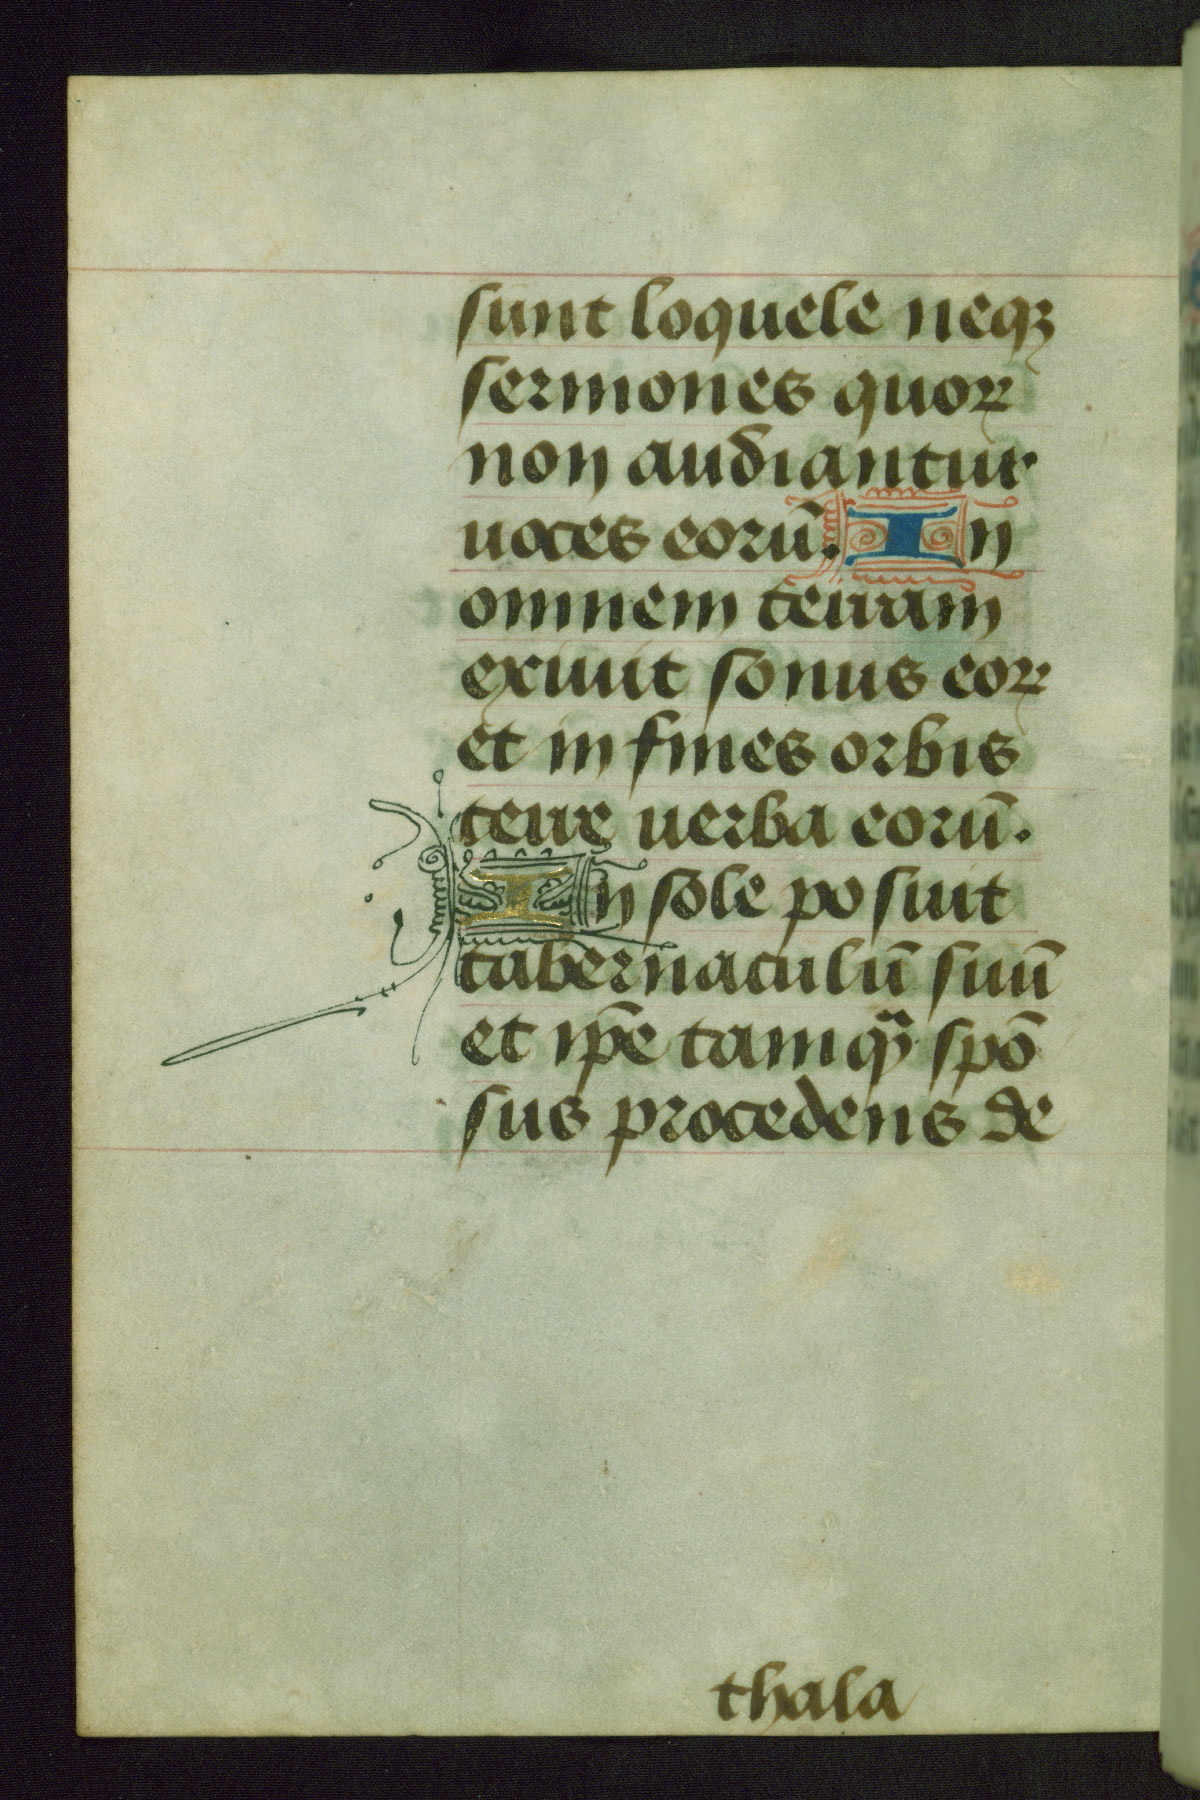 sunt loquele neqꝫ
sermones quoꝝ
non audiantur
uoces eorū. In
omnem terram
exiuit sonus eoꝝ
et in fines orbis
terre uerba eorū.
In sole posuit
tabernaculū suū
et ip̄e tamqᷓ spō
sus procedens de
thala